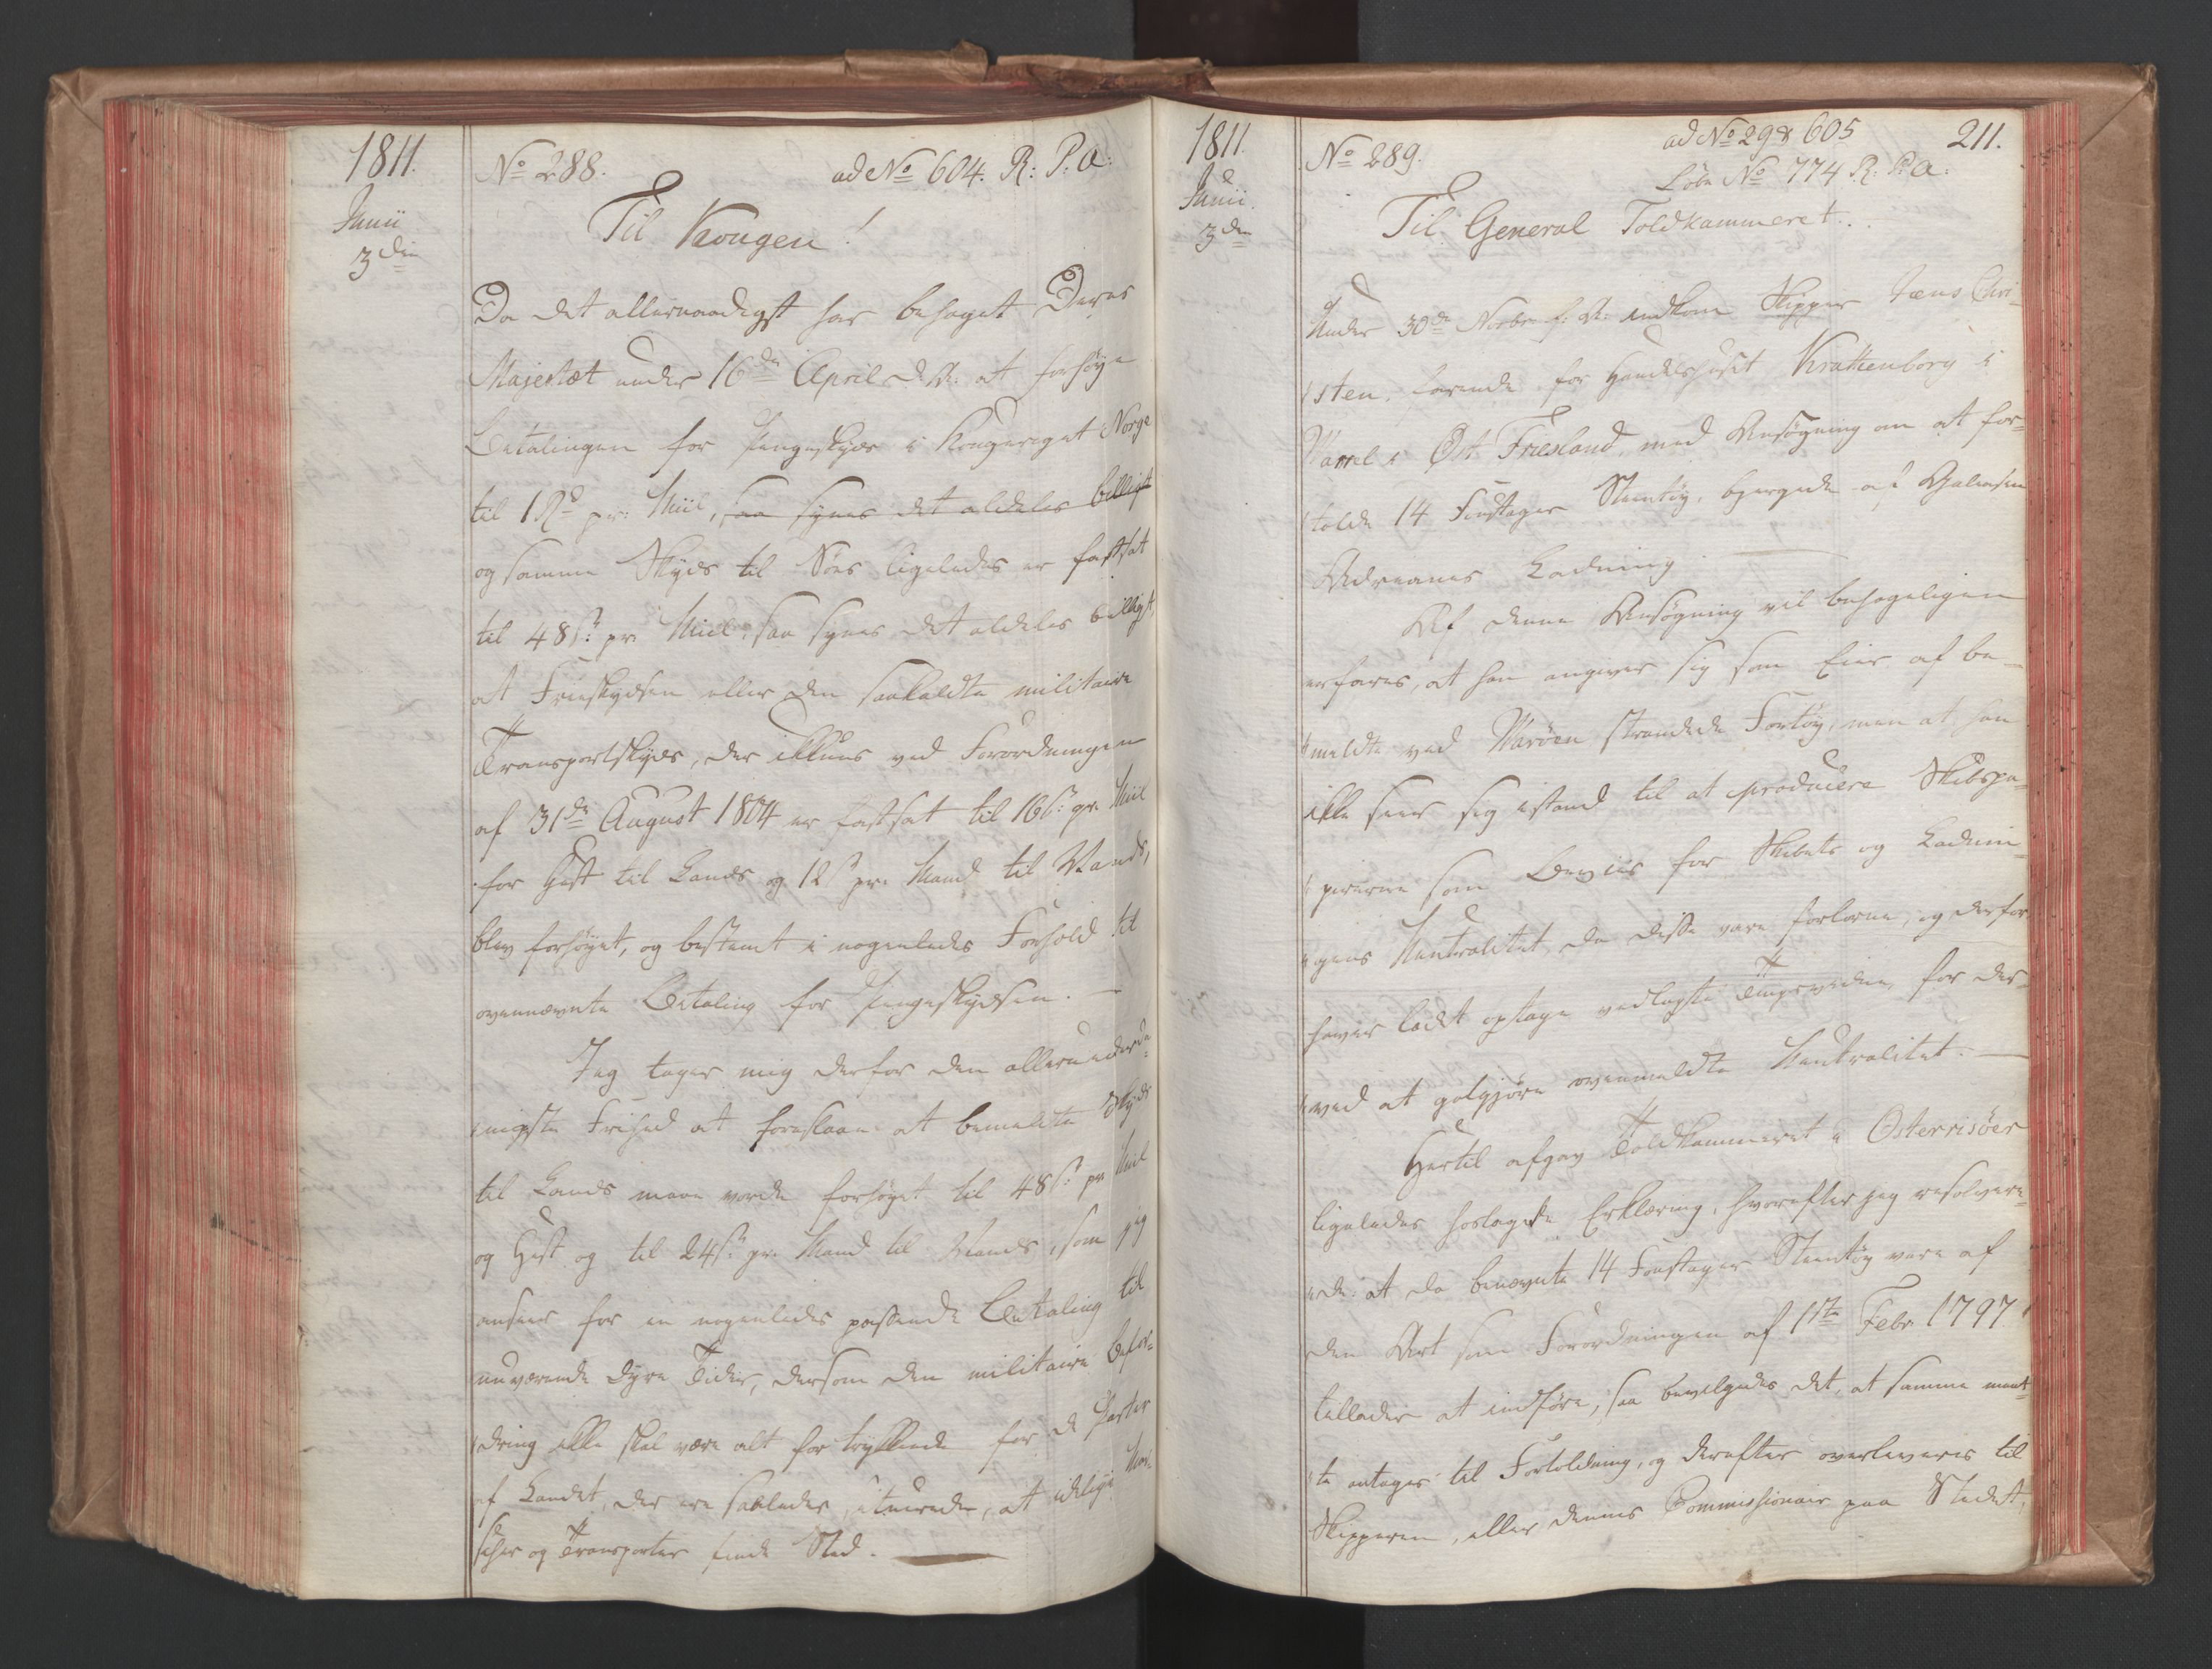 1811.
Junii
3die
No 288. ad No 604. R: P: A:
Til Kongen!
Da det allernaadigst har behaget Deres
Majestæt under 16de April d. A: at forhøye
Betalingen for Pengeskyds i Kongeriget Norge
til 1 Rd pr: Miil, saa synes det aldeles billigt
og samme Skyds til Søes ligeledes er fastsat
til 48 s: pr Miil, saa synes det aldeles billigt,
at Frieskydsen eller den saakaldte militaire
Transportskyds, der ikkuns ved Forordningen
af 31de August 1804 er fastsat til 16 s: pr. Miil
for Hest til Lands og 12 s pr. Mand til Vands,
blev forhøyet, og bestemt i nogenledes Forhold til
ovennævnte Betaling for Pengeskydsen. —
Jeg tager mig derfor den allerunderda-
nigste Frihed at foreslaae at bemeldte Skyds
til Lands maae vorde forhøyet til 48 s: pr Miil
og Hest og til 24 s: pr. Mand til Vands, som jeg
anseer for en nogenledes passende Betaling til
nuværende dyre Tider, dersom den militaire Befor-
dring ikke skal være alt for trykkende for de Parter
af Landet, der ere saaledes situerede, at idelige Mar-
scher og Transporter finde Sted. —
1811.
Junii.
3die
No 289. ad No 298 605 211.
Løbe No 774 R: P: A:
Til General Toldkammeret.
Under 30de Novbr f. A: indkom Skipper Jens Chri-
sten, farende for Handelshuset Krattenborg i
Varrel i Øst Friesland, med Ansøgning om at for-
tolde 14 Fustager Steentøy, bjergede af Galeasen
Adreanes Ladning
Af denne Ansøgning vil behageligen
erfares, at han angiver sig som Eier af be-
meldte ved Marøen strandede Fartøy, men at han
ikke seer sig istand til at producere Skibspa-
pirerne som Beviis for Skibets og Ladnin-
gens Neutralitet da disse vare forlorne, og derfor
haver ladet optage vedlagte Tingsvidne for der-
ved at godgjøre ovenmeldte Neutralitet. —
Hertil afgav Toldkammeret i Osterrisöer
ligeledes hoslagde Erklæring, hvorefter jeg resolvere-
de: at da benævnte 14 Foustager Steentøy vare af
den Art som Forordningen af 1ste Febr 1797
tillader at indføre, saa bevilgedes det, at samme maat-
te antages til Fortoldning, og derefter overleveres til
Skipperen, eller dennes Commissionair paa Stedet,